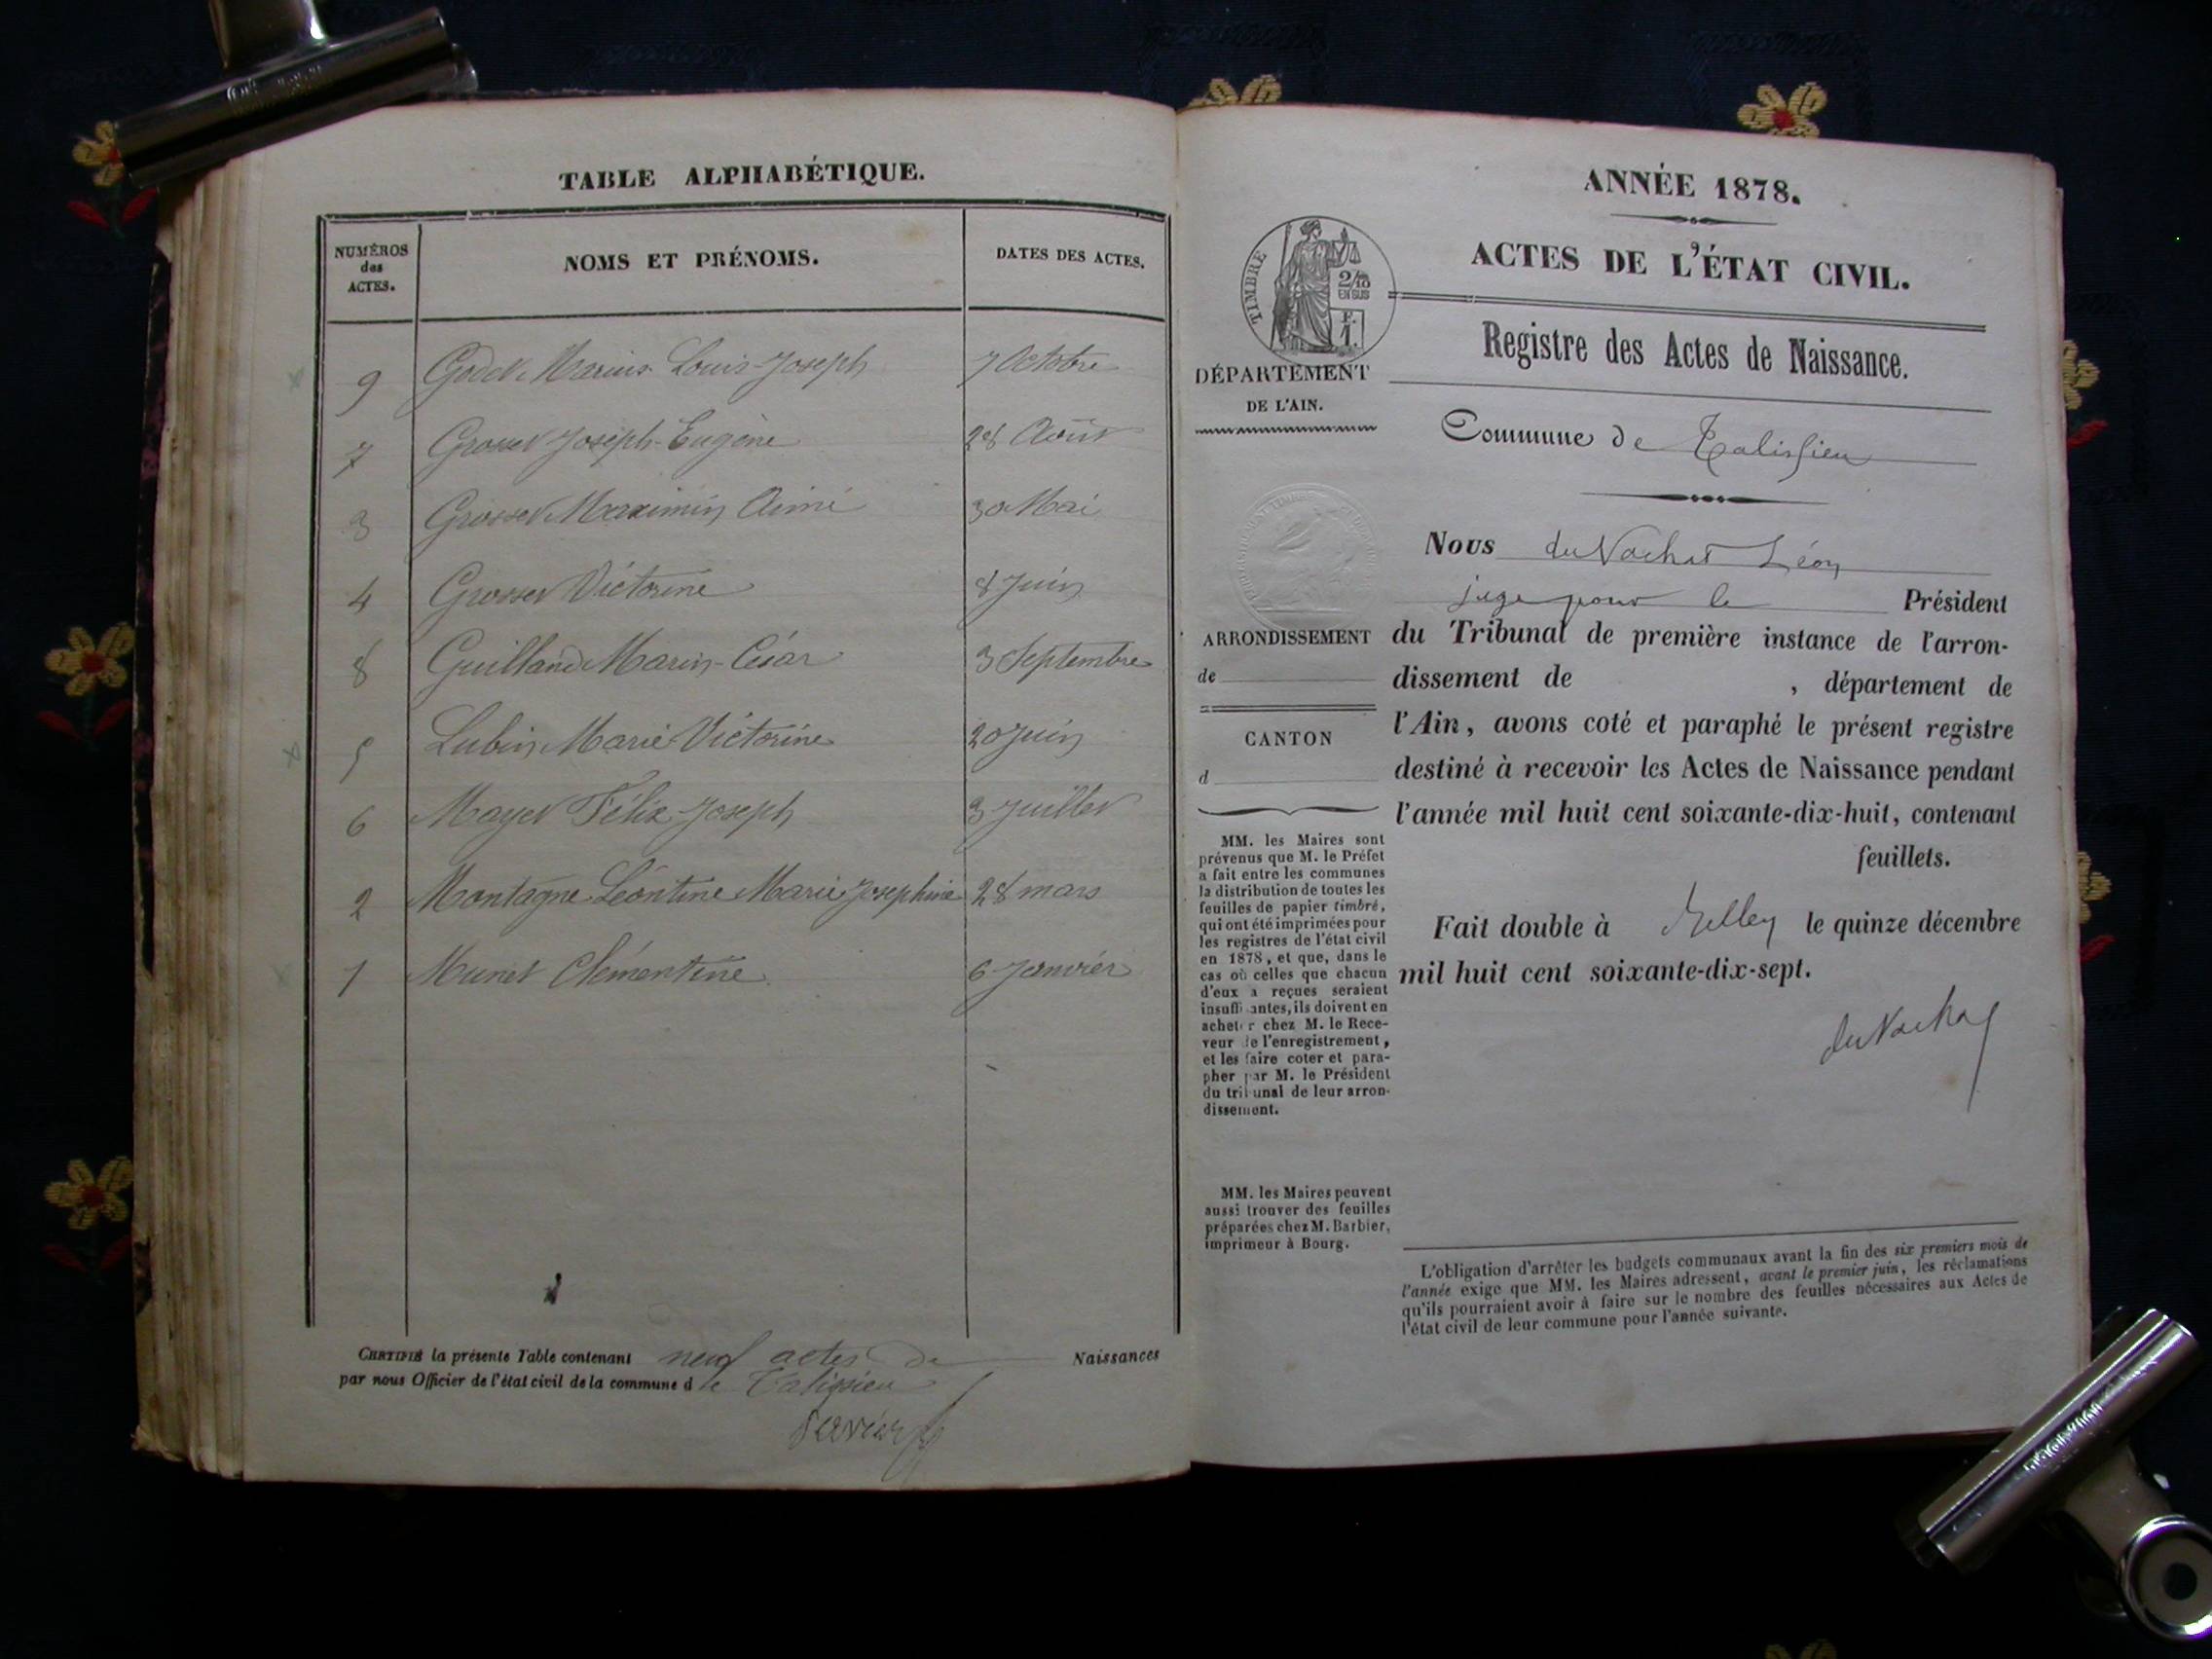 TABLE ALPHABÉTIQUE.
NUMÉROS
des
ACTES.
NOMS ET PRÉNOMS.
DATES DES ACTES.
9 Godet Marius Louis-Joseph 7 Octobre
7 Grosset Joseph-Eugène 28 Août
3 Grosset Maximin Aimé 30 Mai
4 Grosset Victorine 8 Juin
8 Guilland Marin-César 3 Septembre
5 Lubin Marie Victorine 20 Juin
6 Mayet Félix-Joseph 3 Juillet
2 Montagne Léontine Marie Josephine 28 mars
1 Munet Clémentine 6 Janvier
CERTIFIÉ la présente Table contenant neuf actes de Naissances
par nous Officier de l'état civil de la commune de Talissieu
ANNÉE 1878.
ACTES DE L'ÉTAT CIVIL.
TIMBRE
2/10
EN SUS
F.
1.
DÉPARTEMENT
DE L'AIN.
Registre des Actes de Naissance.
Commune de Talissieu
Nous du Vachat Léon
juge pour le Président
du Tribunal de première instance de l'arron-
dissement de , département de
l'Ain, avons coté et paraphé le présent registre
destiné à recevoir les Actes de Naissance pendant
l'année mil huit cent soixante-dix-huit, contenant
feuillets.
Fait double à Belley le quinze décembre
mil huit cent soixante-dix-sept.
du Vachat
ARRONDISSEMENT
de
CANTON
d
MM. les Maires sont
prévenus que M. le Préfet
a fait entre les communes
la distribution de toutes les
feuilles de papier timbré,
qui ont été imprimées pour
les registres de l'état civil
en 1878, et que, dans le
cas où celles que chacun
d'eux a reçues seraient
insuffisantes, ils doivent en
acheter chez M. le Rece-
veur de l'enregistrement,
et les faire coter et para-
pher par M. le Président
du tribunal de leur arron-
dissement.
MM. les Maires peuvent
aussi trouver des feuilles
préparées chez M. Barbier,
imprimeur à Bourg.
L'obligation d'arrêter les budgets communaux avant la fin des six premiers mois de
l'année exige que MM. les Maires adressent, avant le premier juin, les réclamations
qu'ils pourraient avoir à faire sur le nombre des feuilles nécessaires aux Actes de
l'état civil de leur commune pour l'année suivante.